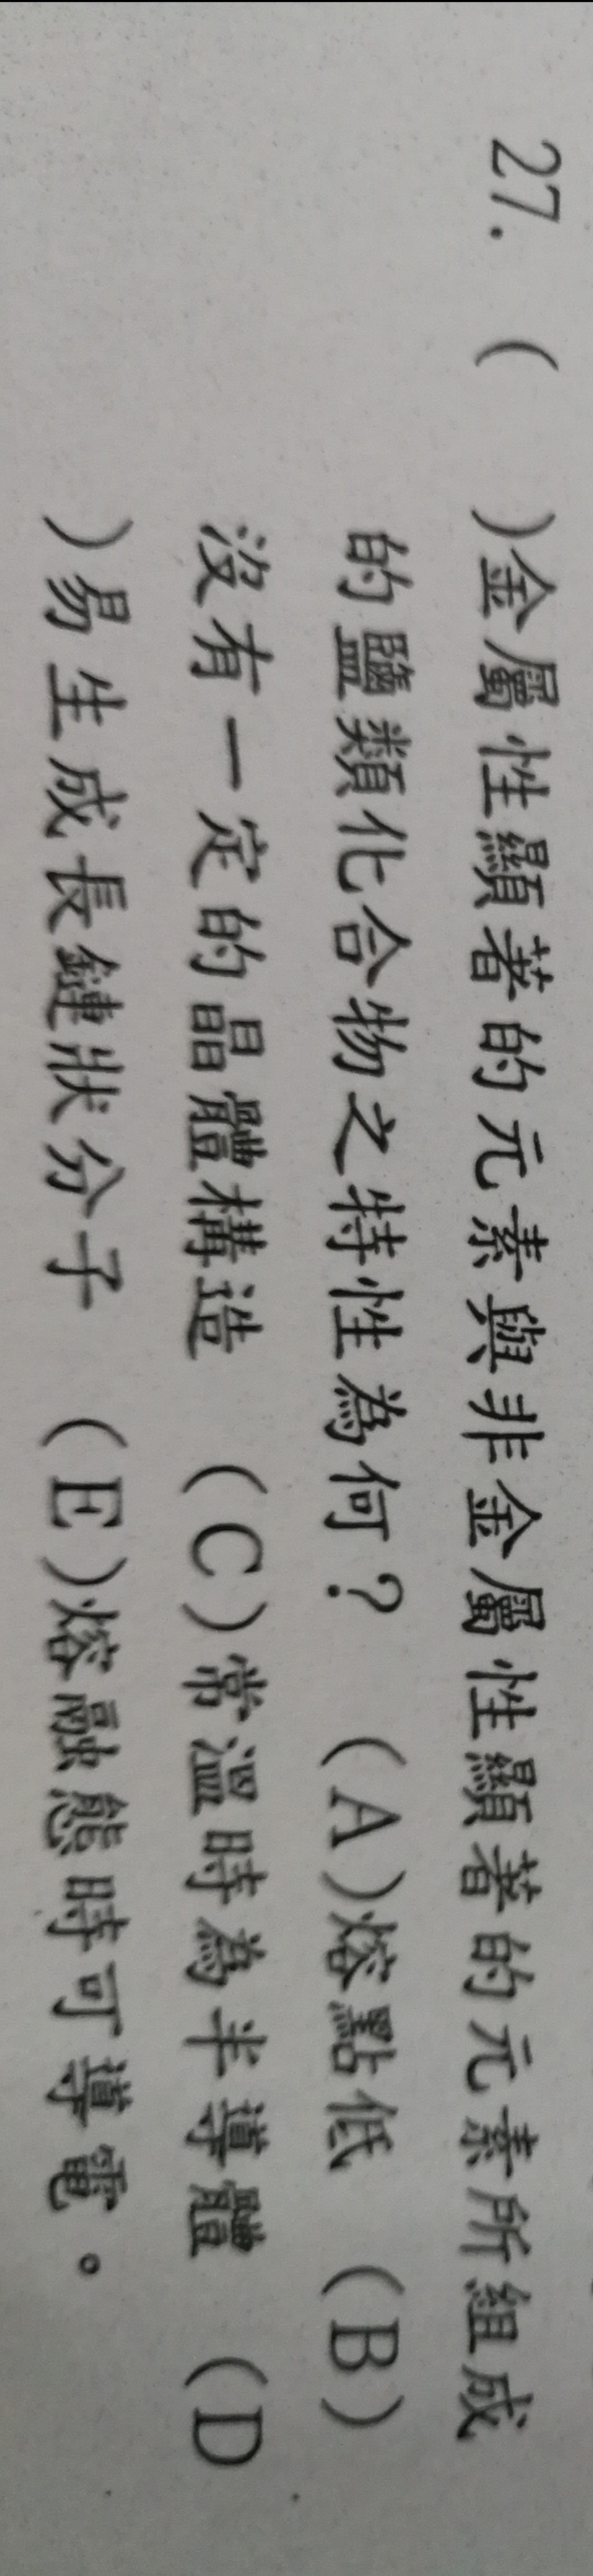 27. (　　)金屬性顯著的元素與非金屬性顯著的元素所組成
的鹽類化合物之特性為何？ (A)熔點低 (B)
沒有一定的晶體構造 (C)常溫時為半導體 (D
)易生成長鏈狀分子 (E)熔融態時可導電。